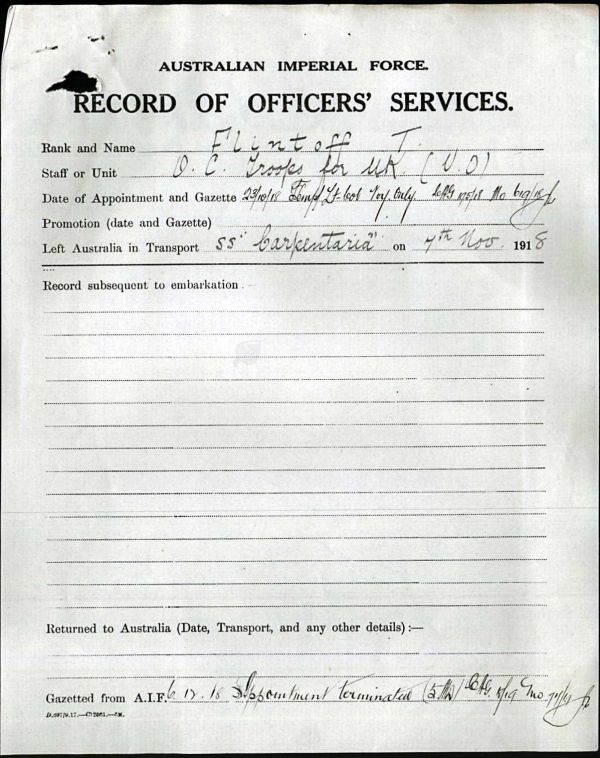 AUSTRALIAN IMPERIAL FORCE.
RECORD OF OFFICERS' SERVICES.
Rank and Name Flintoff T.
Staff or Unit O. C. Troops for UK (V.O)
Date of Appointment and Gazette 23/10/18 Temp/Lt-Col Voy. Only.
Promotion (date and Gazette)
Left Australia in Transport SS "Carpentaria" on 7th Nov. 1918
Record subsequent to embarkation.—
Returned to Australia (Date, Transport, and any other details):—
Gazetted from A.I.F. 6.12.18 Appointment terminated